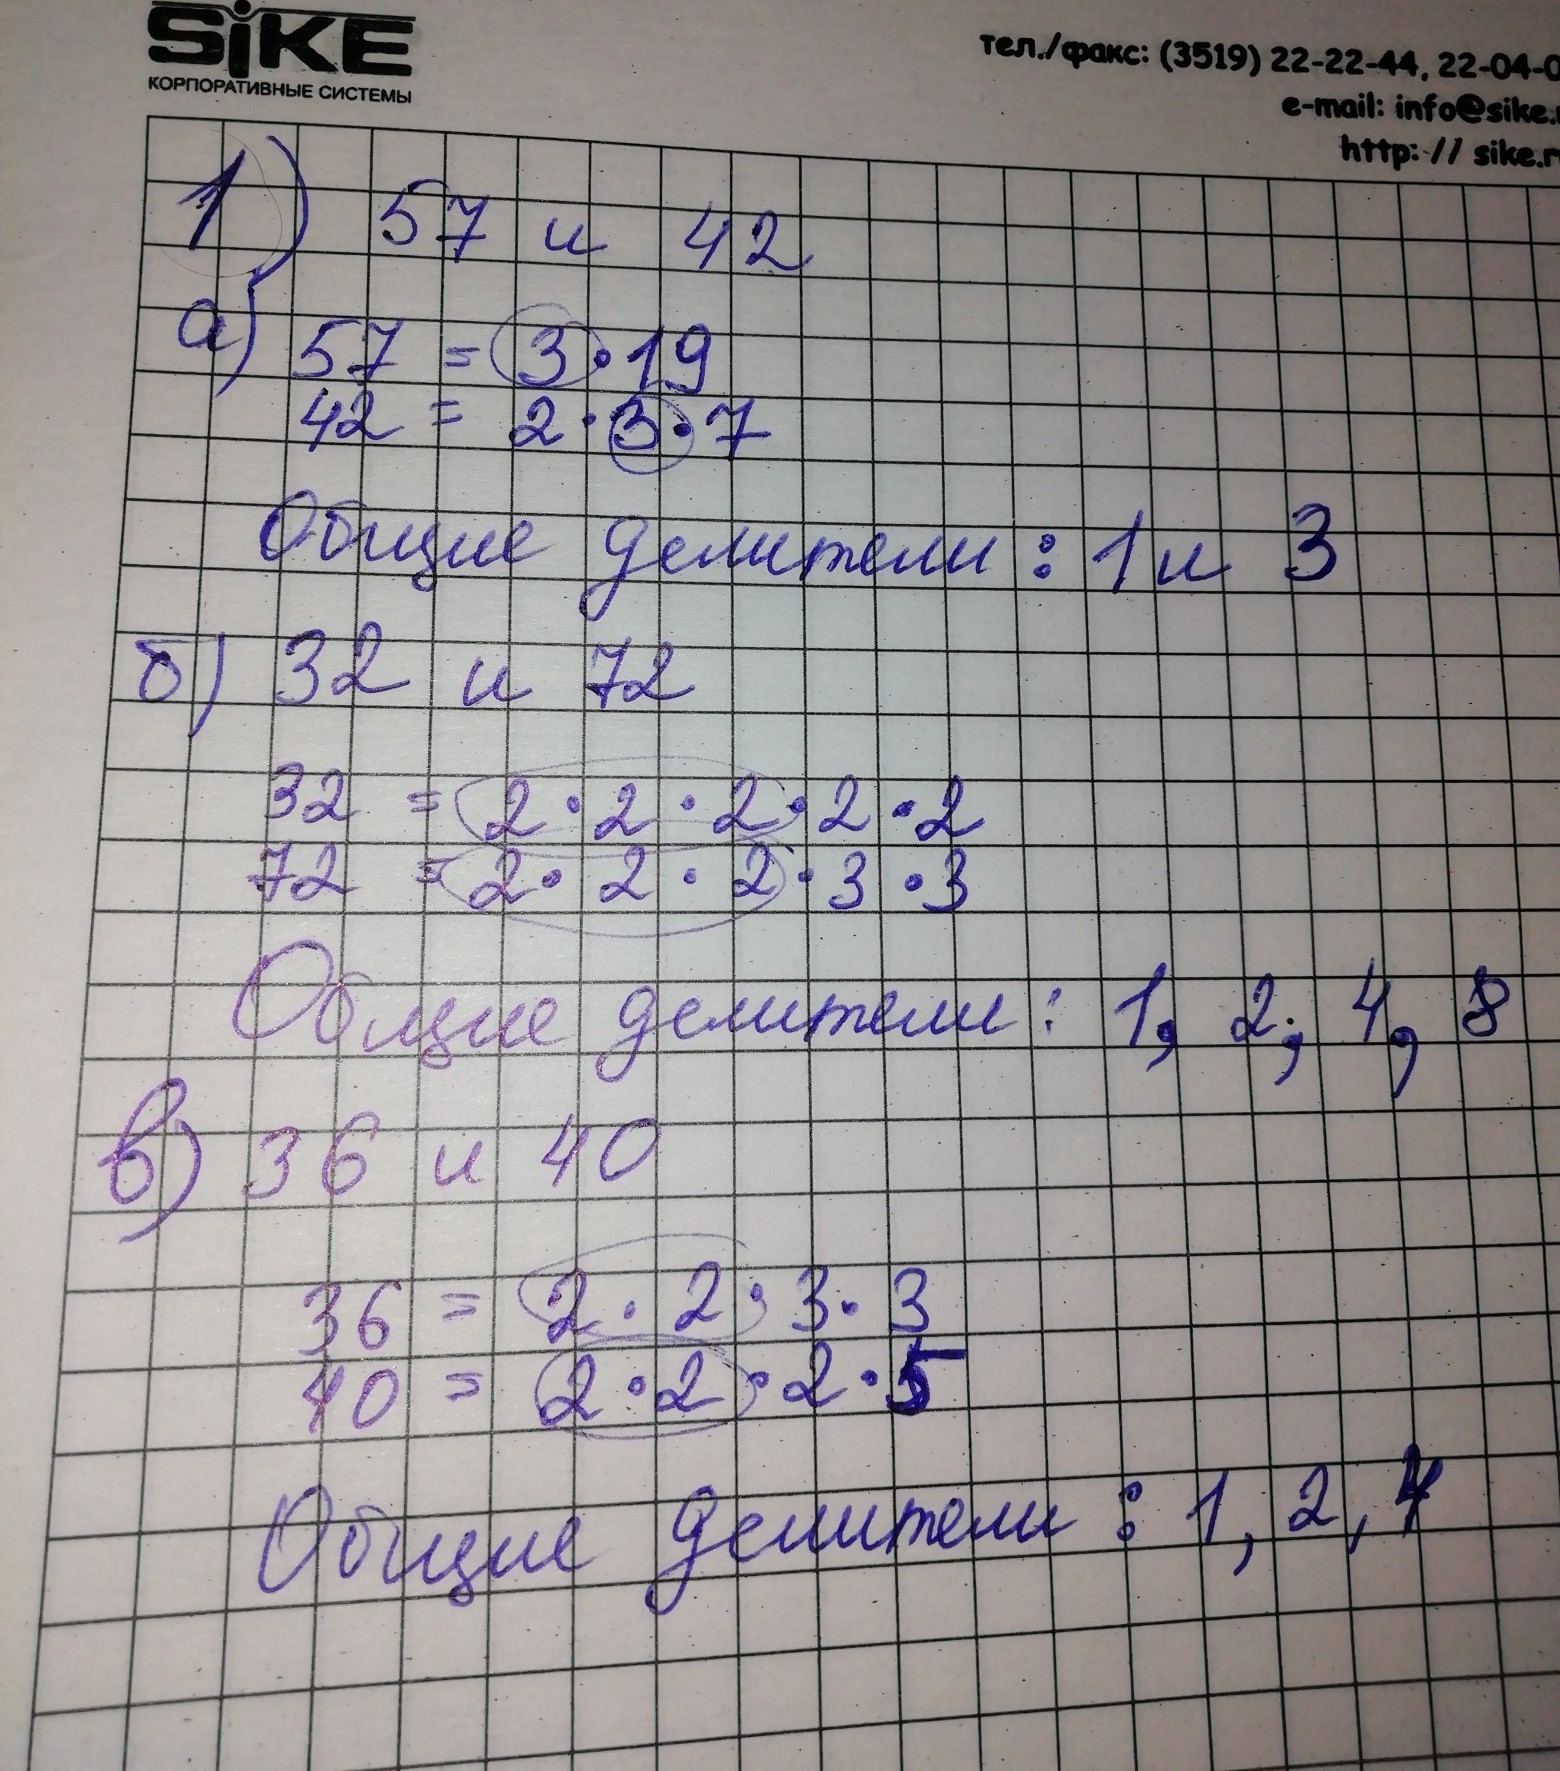 SiKE
КОРПОРАТИВНЫЕ СИСТЕМЫ
тел./факс: (3519) 22-22-44, 22-04-0
e-mail: info@sike.
http: // sike.r
1) 57 и 42
а) 57 = 3·19
42 = 2·3·7
Общие делители: 1 и 3
б) 32 и 72
32 = 2·2·2·2·2
72 = 2·2·2·3·3
Общие делители: 1, 2; 4, 8
в) 36 и 40
36 = 2·2·3·3
40 = 2·2·2·5
Общие делители: 1, 2, 4